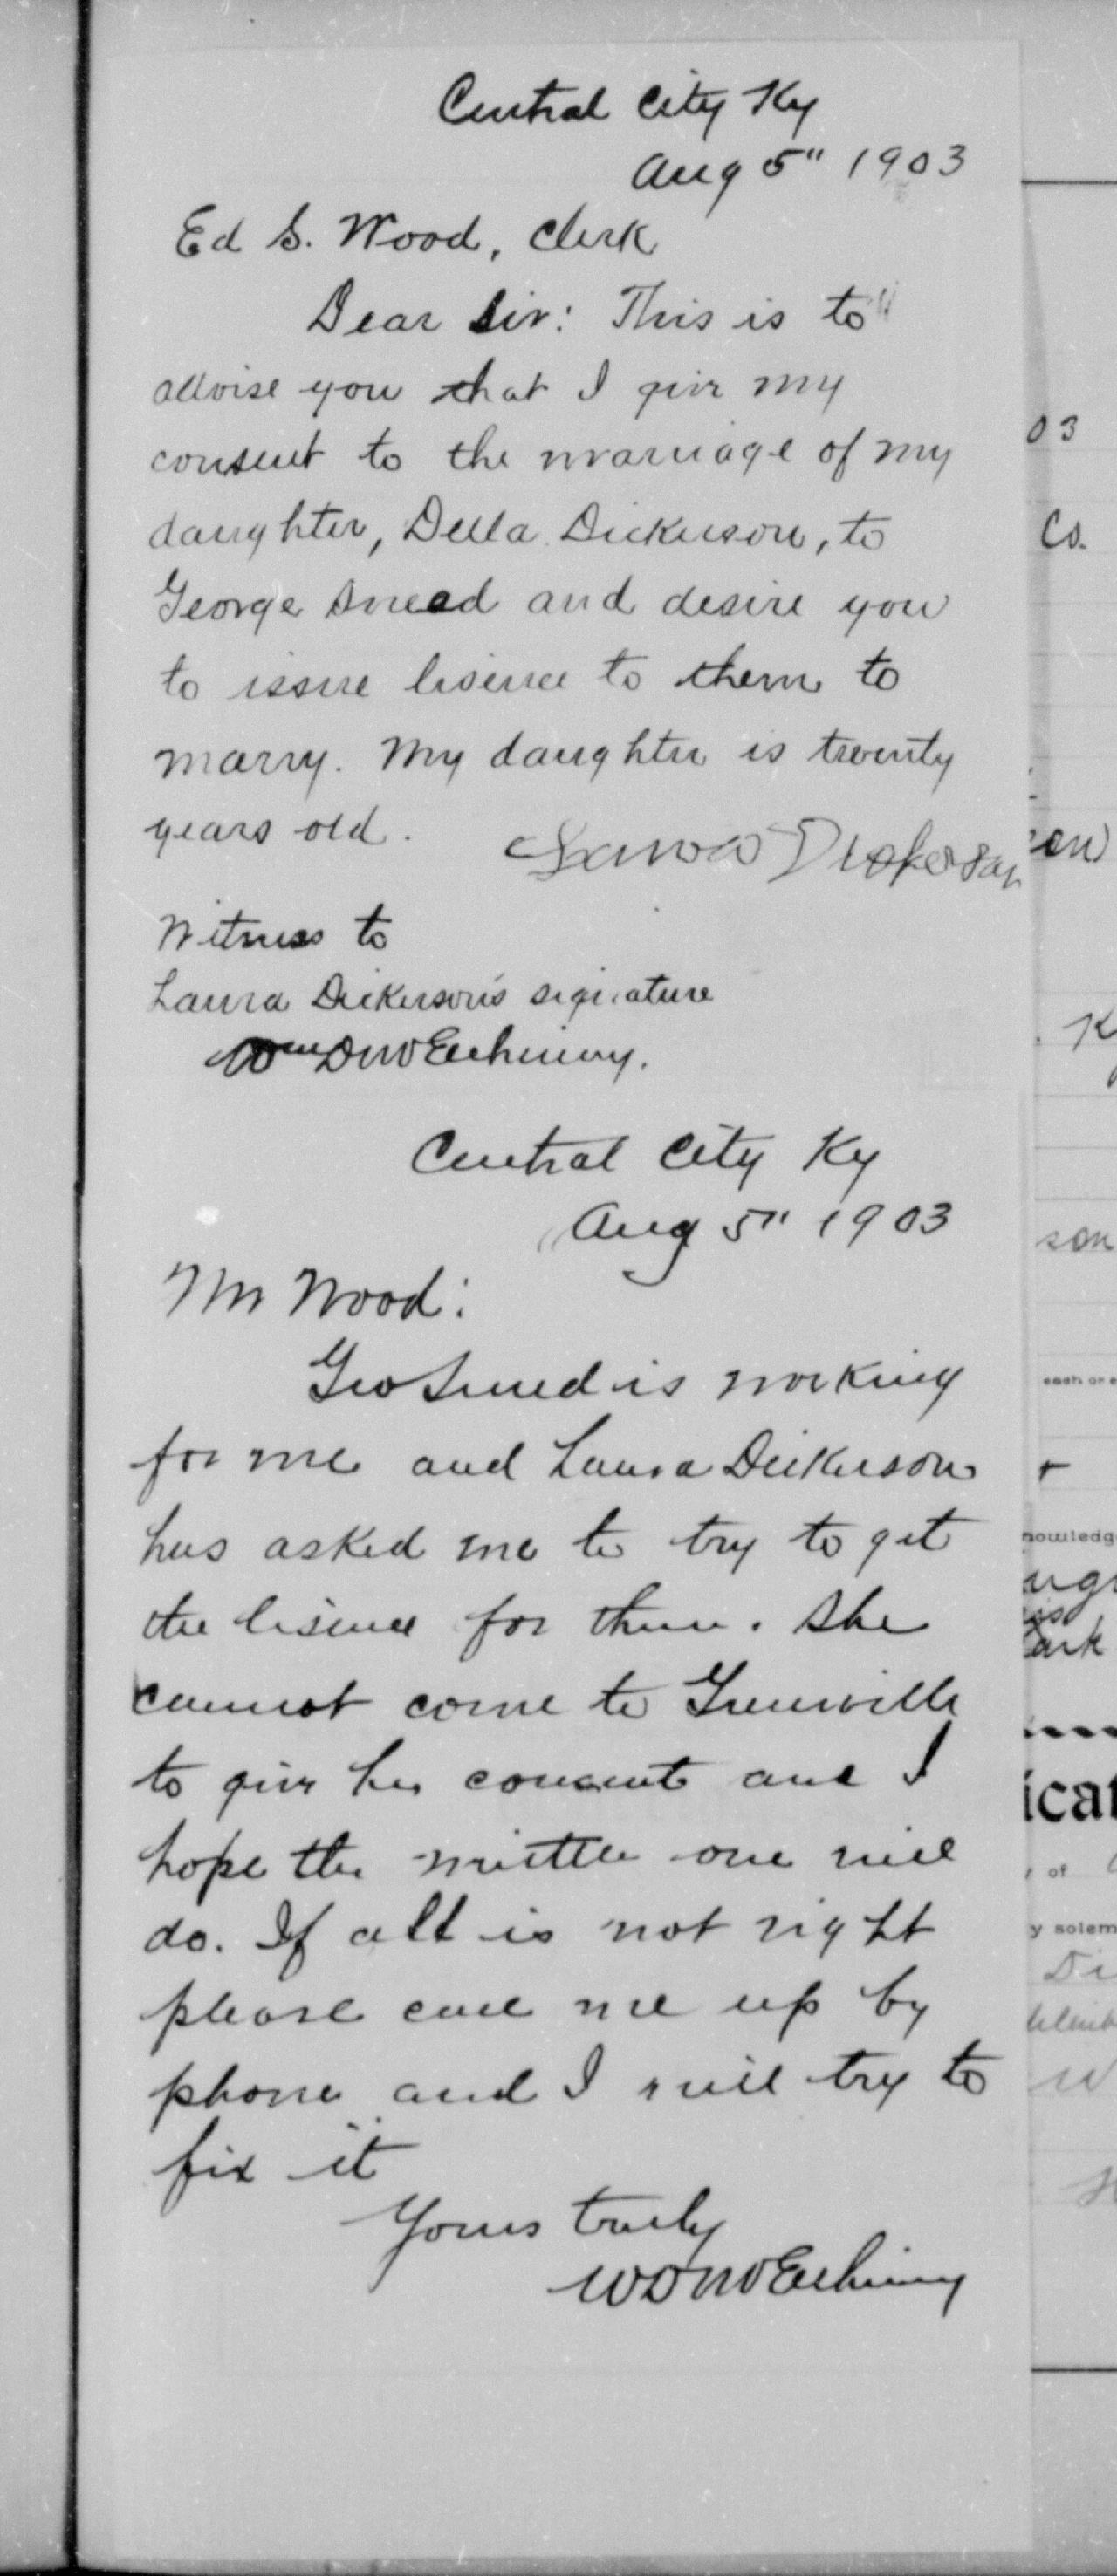 Central City Ky
Aug 5" 1903
Ed S. Wood, Clerk
Dear Sir: This is to
advise you that I give my
consent to the marriage of my
daughter, Della Dickerson, to
George Snead and desire you
to issue lisence to them to
marry. My daughter is twenty
years old.
Laura Dickerson
Witness to
Laura Dickerson's signature
Wm
Central City Ky
Aug 5" 1903
Mr Wood:
Geo Snead is working
for me and Laura Dickerson
has asked me to try to get
the lisence for them. She
cannot come to Greenville
to give her concent and I
hope the written one will
do. If all is not right
please call me up by
phone and I will try to
fix it
Yours truly
03
Co.
son
ark
of